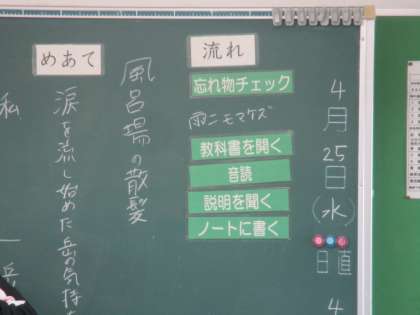 4月25日(水)
日直
4
流れ
忘れ物チェック
雨ニモマケズ
教科書を開く
音読
説明を聞く
ノートに書く
風呂場の散髪
めあて
涙を流し始めた岳の気持
私
一